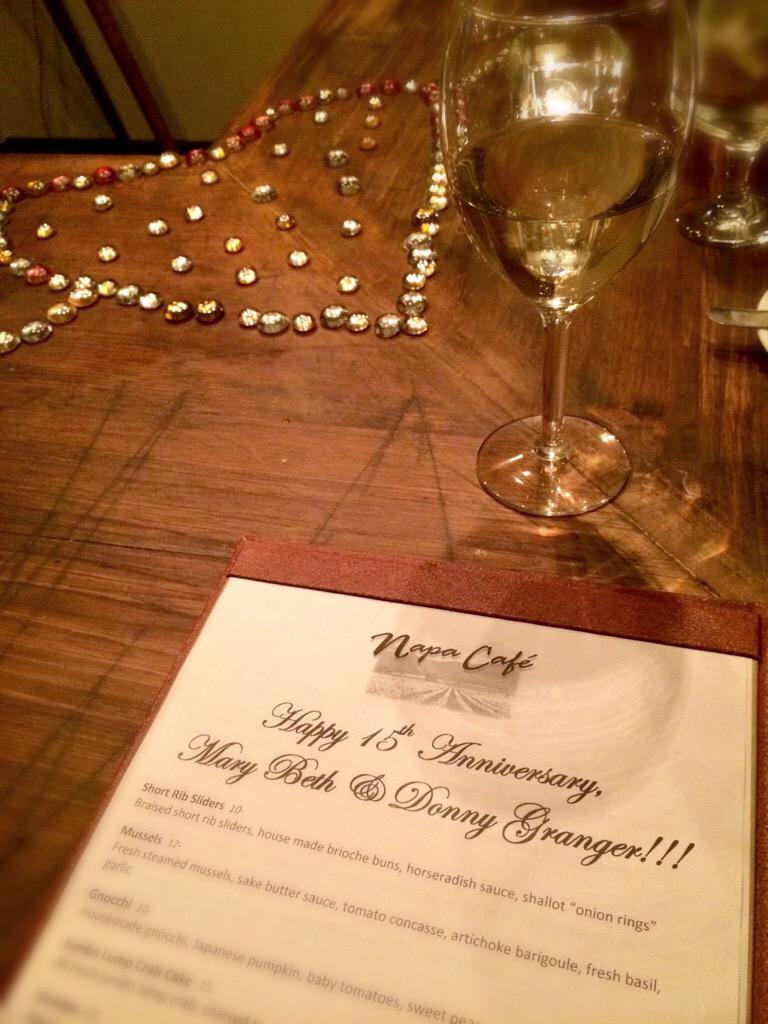 Napa Café
Happy 15th Anniversary,
Mary Beth & Donny Granger!!!
Short Rib Sliders 10-
Braised short rib sliders, house made brioche buns, horseradish sauce, shallot "onion rings"
Mussels 12-
Fresh steamed mussels, sake butter sauce, tomato concasse, artichoke barigoule, fresh basil,
garlic
Gnocchi 10-
Housemade gnocchi, Japanese pumpkin, baby tomatoes, sweet pea
Jumbo Lump Crab Cake 15-
jumbo lump crab, charred